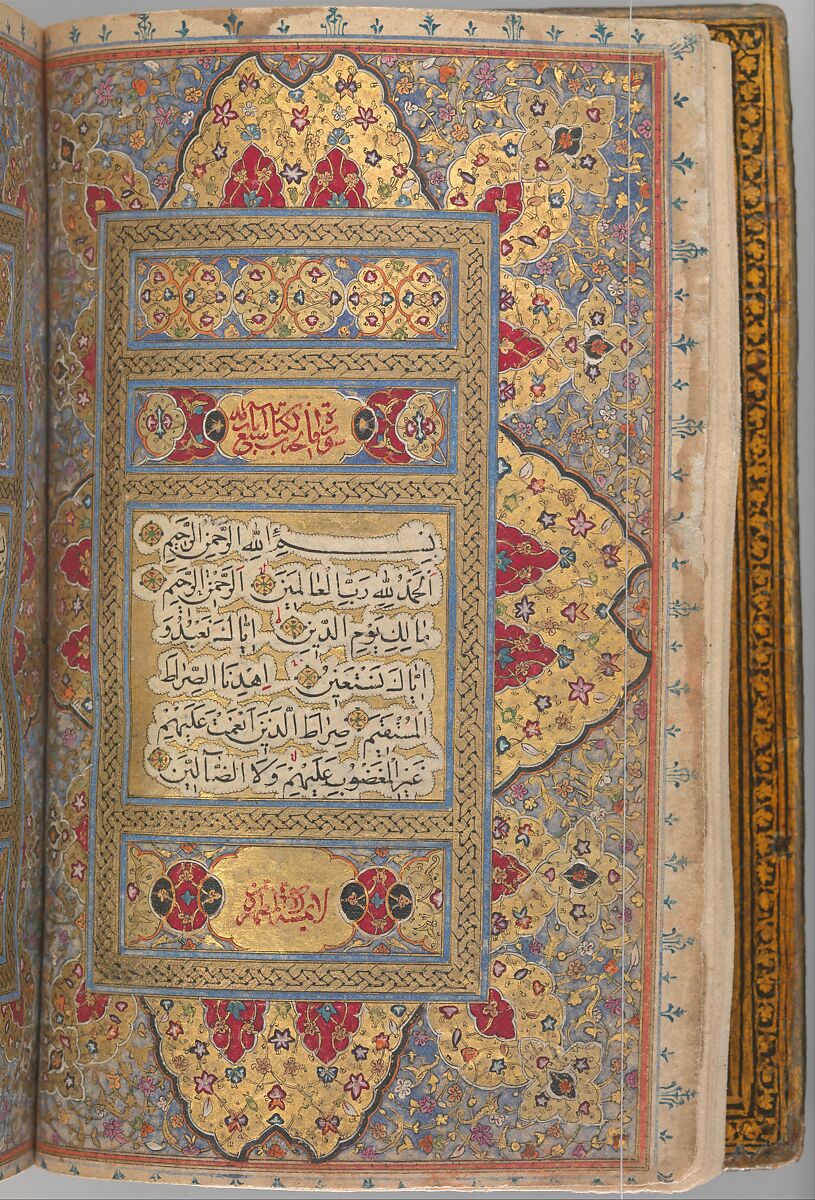 سورة فاتحة الكتاب سبع آيات
بِسْمِ اللهِ الرَّحْمٰنِ الرَّحِيمِ
اَلْحَمْدُ لِلّٰهِ رَبِّ الْعَالَمِينَ الرَّحْمٰنِ الرَّحِيمِ
مَالِكِ يَوْمِ الدِّينِ اِيَّاكَ نَعْبُدُ وَ
اِيَّاكَ نَسْتَعِينُ اِهْدِنَا الصِّرَاطَ
الْمُسْتَقِيمَ صِرَاطَ الَّذِينَ اَنْعَمْتَ عَلَيْهِمْ
غَيْرِ الْمَغْضُوبِ عَلَيْهِمْ وَلَا الضَّالِّينَ
لا يمسه الا المطهرون